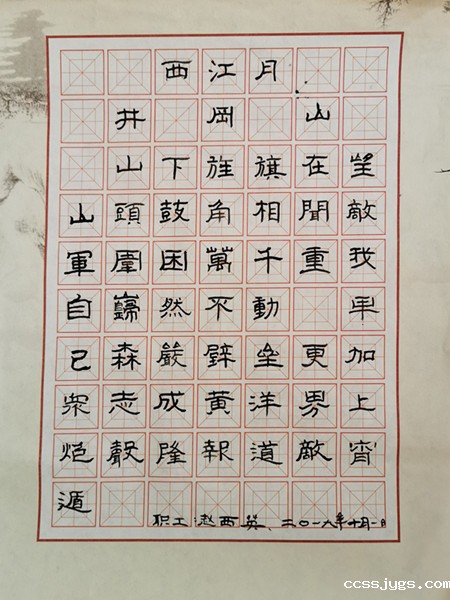 西江月
井岡山
山下旌旗在望
山頭鼓角相聞敵
軍圍困萬千重我
自巋然不動早
己森嚴壁壘更加
衆志成黄洋界上
炮聲隆報道敵宵
遁
职工赵西英、二〇一九年十月一日
ccssjygs.com